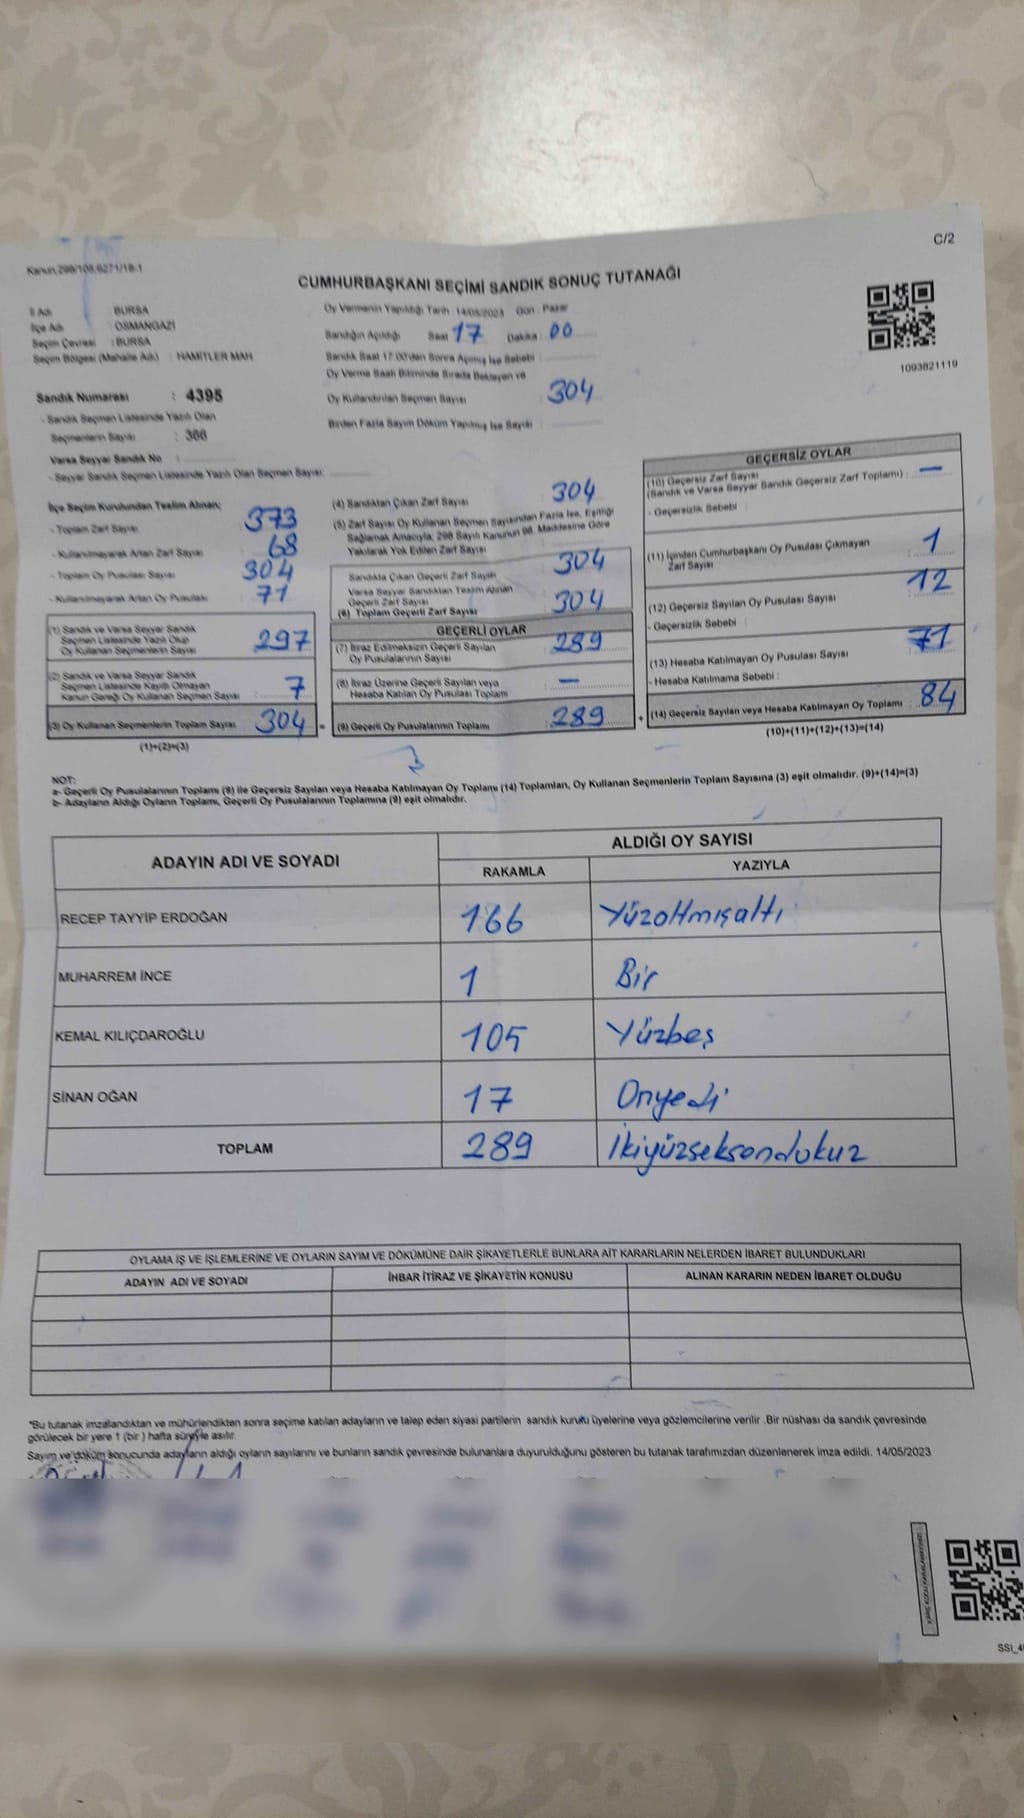 C/2
Kanun,298/108,6271/18-1
CUMHURBAŞKANI SEÇİMİ SANDIK SONUÇ TUTANAĞI
İl Adı BURSA
İlçe Adı : OSMANGAZİ
Seçim Çevresi : BURSA
Seçim Bölgesi (Mahalle Adı) : HAMİTLER MAH
Oy Vermenin Yapıldığı Tarih : 14/05/2023 Gün : Pazar
Sandığın Açıldığı Saat 17 Dakika : 00
Sandık Saat 17:00'den Sonra Açmış İse Sebebi :
Oy Verme Saati Bitiminde Sırada Bekleyen ve
Oy Kullandırılan Seçmen Sayısı : 304
Birden Fazla Sayım Döküm Yapılmış İse Sayısı :
1093821119
Sandık Numarası : 4395
- Sandık Seçmen Listesinde Yazılı Olan
Seçmenlerin Sayısı : 366
Varsa Seyyar Sandık No :
- Seyyar Sandık Seçmen Listesinde Yazılı Olan Seçmen Sayısı:
İlçe Seçim Kurulundan Teslim Alınan;
- Toplam Zarf Sayısı 373
- Kullanılmayarak Artan Zarf Sayısı 68
- Toplam Oy Pusulası Sayısı 304
- Kullanılmayarak Artan Oy Pusulası 71
(1) Sandık ve Varsa Seyyar Sandık
Seçmen Listesinde Yazılı Olup
Oy Kullanan Seçmenlerin Sayısı 297
(2) Sandık ve Varsa Seyyar Sandık
Seçmen Listesinde Kayıtlı Olmayan
Kanun Gereği Oy Kullanan Seçmen Sayısı 7
(3) Oy Kullanan Seçmenlerin Toplam Sayısı 304 =
(1)+(2)=(3)
(4) Sandıktan Çıkan Zarf Sayısı 304
(5) Zarf Sayısı Oy Kullanan Seçmen Sayısından Fazla İse, Eşitliği
Sağlamak Amacıyla; 298 Sayılı Kanunun 98. Maddesine Göre
Yakılarak Yok Edilen Zarf Sayısı
Sandıkta Çıkan Geçerli Zarf Sayısı 304
Varsa Seyyar Sandıktan Teslim Alınan
Geçerli Zarf Sayısı
(6) Toplam Geçerli Zarf Sayısı 304
GEÇERLİ OYLAR
(7) İtiraz Edilmeksizin Geçerli Sayılan
Oy Pusulalarının Sayısı : 289
(8) İtiraz Üzerine Geçerli Sayılan veya
Hesaba Katılan Oy Pusulası Toplamı : —
(9) Geçerli Oy Pusulalarının Toplamı : 289 +
GEÇERSİZ OYLAR
(10) Geçersiz Zarf Sayısı
(Sandık ve Varsa Seyyar Sandık Geçersiz Zarf Toplamı) : —
- Geçersizlik Sebebi :
(11) İçinden Cumhurbaşkanı Oy Pusulası Çıkmayan
Zarf Sayısı : 1
(12) Geçersiz Sayılan Oy Pusulası Sayısı : 12
- Geçersizlik Sebebi :
(13) Hesaba Katılmayan Oy Pusulası Sayısı : 71
- Hesaba Katılmama Sebebi :
(14) Geçersiz Sayılan veya Hesaba Katılmayan Oy Toplamı : 84
(10)+(11)+(12)+(13)=(14)
NOT:
a- Geçerli Oy Pusulalarının Toplamı (9) ile Geçersiz Sayılan veya Hesaba Katılmayan Oy Toplamı (14) Toplamları, Oy Kullanan Seçmenlerin Toplam Sayısına (3) eşit olmalıdır. (9)+(14)=(3)
b- Adayların Aldığı Oyların Toplamı, Geçerli Oy Pusulalarının Toplamına (9) eşit olmalıdır.
ADAYIN ADI VE SOYADI
ALDIĞI OY SAYISI
RAKAMLA YAZIYLA
RECEP TAYYİP ERDOĞAN 166 Yüzaltmışaltı
MUHARREM İNCE 1 Bir
KEMAL KILIÇDAROĞLU 105 Yüzbeş
SİNAN OĞAN 17 Onyedi
TOPLAM 289 İkiyüzseksendokuz
OYLAMA İŞ VE İŞLEMLERİNE VE OYLARIN SAYIM VE DÖKÜMÜNE DAİR ŞİKAYETLERLE BUNLARA AİT KARARLARIN NELERDEN İBARET BULUNDUKLARI
ADAYIN ADI VE SOYADI İHBAR İTİRAZ VE ŞİKAYETİN KONUSU ALINAN KARARIN NEDEN İBARET OLDUĞU
*Bu tutanak imzalandıktan ve mühürlendikten sonra seçime katılan adayların ve talep eden siyasi partilerin sandık kurulu üyelerine veya gözlemcilerine verilir .Bir nüshası da sandık çevresinde
görülecek bir yere 1 (bir ) hafta süreyle asılır.
Sayım ve döküm sonucunda adayların aldığı oyların sayılarını ve bunların sandık çevresinde bulunanlara duyurulduğunu gösteren bu tutanak tarafımızdan düzenlenerek imza edildi. 14/05/2023